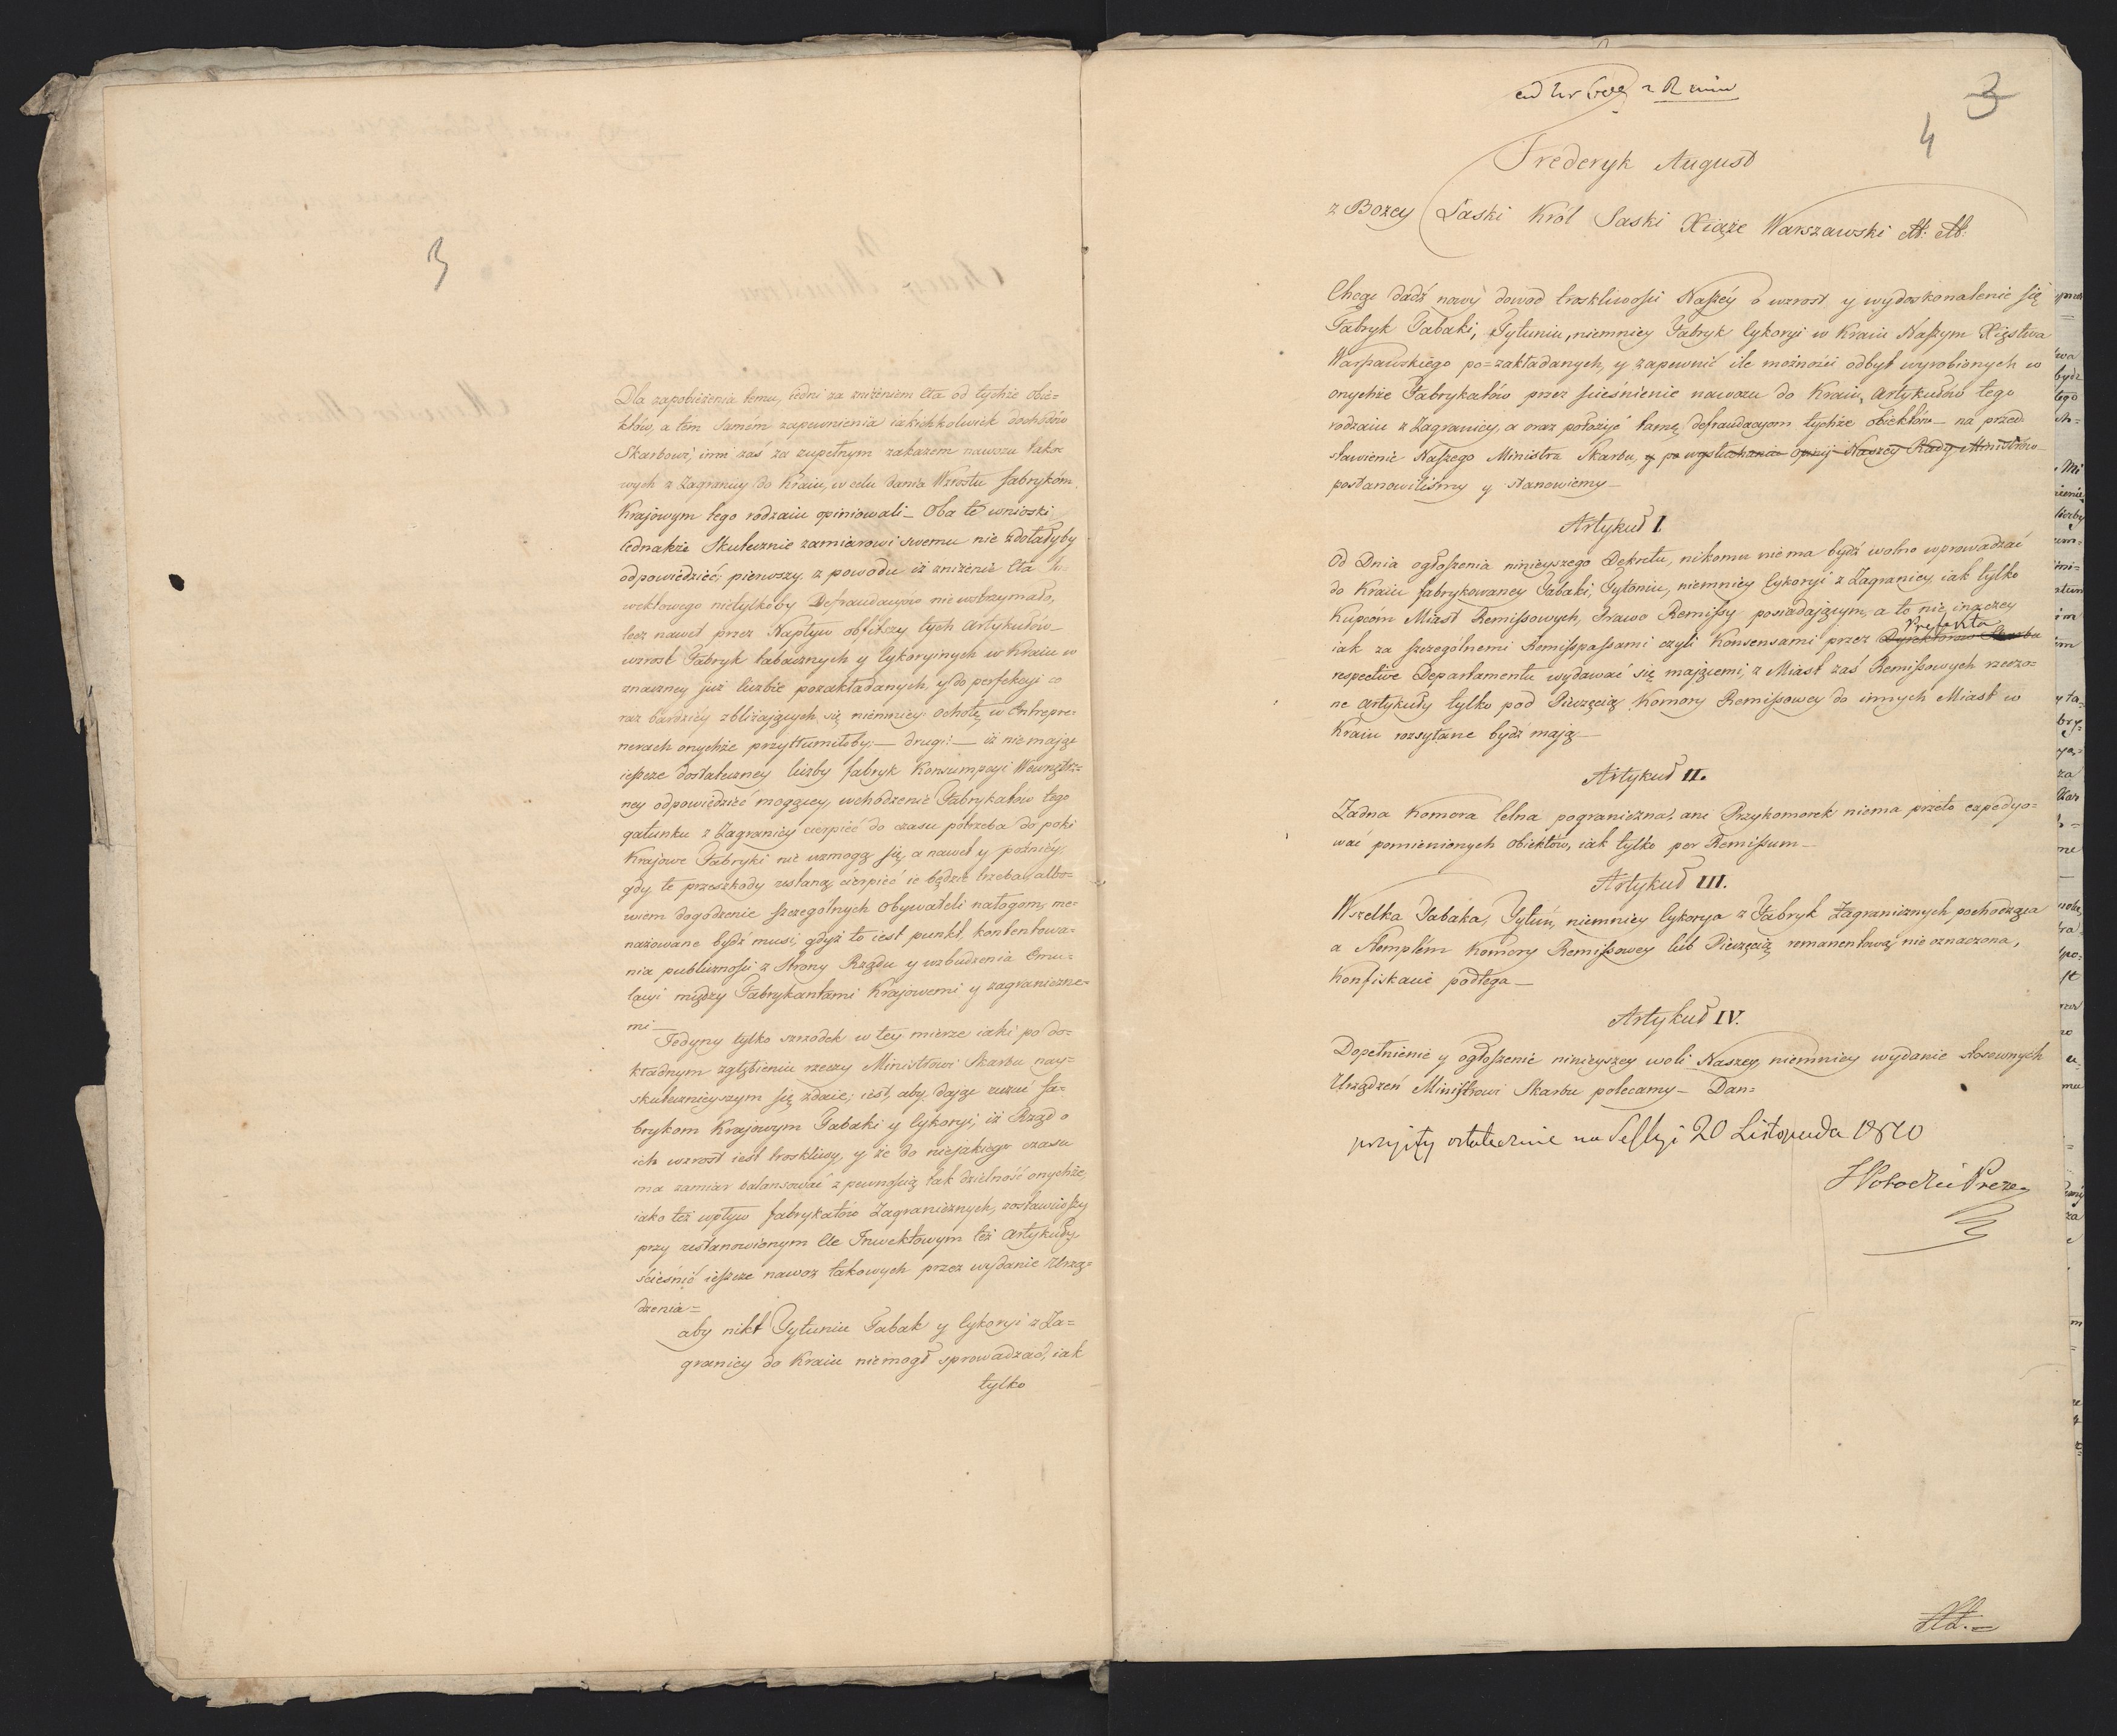 3
Dla zapobieżenia temu, iedni za zniżeniem Cła od tychże obie=
któw, a tém samém zapewnienia iakichkolwiek dochodów
Skarbowi, inni zaś za zupełnym zakazem nawozu tako=
wych z Zagranicy do Kraiu, w celu dania Wzrostu fabrykóm
Krajowym tego rodzaiu opiniowali_ Oba te wnioski
iednakże Skutecznie zamiarowi swemu nie zdołałyby
odpowiedzieć; pierwszy z powodu iż zniżenie Cła In=
wektowego nietylkoby Defraudacyów nie wstrzymało,
lecz nawet przez Napływ obfitszy tych artykułów_
wzrost Fabryk tabacznych y Cykoryinych w Kraiu w
znaczney już liczbie pozakładanych, y do perfekcyi co
raz bardziéy zbliżaiących się, niemniey ochotę w Entrepre=
nerach onychże przytłumiłoby;_ drugi:_ iż nie mając
ieszcze dostateczney liczby fabryk Konsumpcyi Wewnętrz=
ney odpowiedzieć mogącey, wchodzenie Fabrykatów tego
gatunku z Zagranicy cierpieć do czasu potrzeba do poki
Krajowe Fabryki nie wzmogą się, a nawet y poźniéy,
gdy te przeszkody ustaną, cierpieć ie będzie trzeba, albo=
wiem dogodzenie szczegolnych Obywateli nałogom, me=
nażowane bydź musi, gdyż to iest punkt, kontentowa=
nia publiczności z Strony Rządu y wzbudzenia Emu=
lacyi między Fabrykantami Krajowemi y zagraniczne=
mi_
Jedyny tylko szrzodek w tey mierze iaki po do=
kładnym zgłębieniu rzeczy Ministrowi Skarbu nay=
skutecznieyszym się zdaie; iest, aby dając czuć fa=
brykom Krajowym Tabaki y Cykoryi, iż Rząd o
ich wzrost iest troskliwy, y że do niejakiego czasu
ma zamiar balansować z pewnością tak dzielność onychże,
iako też wpływ fabrykatów Zagranicznych, zostawiwszy
przy ustanowionym Cle Inwektowym też artykuły
ścieśnić ieszcze nawoz takowych przez wydanie Urzą=
dzenia=
aby nikt Tytuniu Tabak y Cykoryi z Za=
granicy do Kraiu niemogł sprowadzać, iak
tylko
3
4
Frederyk August
z Bożey Łaski Król Saski Xiąże Warszawski etc: etc:
Chcąc dadź nowy dowod troskliwości Naszéy o wzrost y wydoskonalenie się
Fabryk Tabaki, Tytuniu, niemniey Fabryk Cykoryi w Kraiu Naszym Xięstwa
Warszawskiego po=zakładanych, y zapewnić ile możności odbyt wyrobionych w
onychże Fabrykatów przez ścieśnienie nawozu do Kraiu, artykułów tego
rodzaiu z Zagranicy, a oraz położyć tamę defraudacyom tychże obiektów_ na przed=
stawienie Naszego Ministra Skarbu, y po wysłuchaniu opinij Naszey Rady Ministrów_
postanowiliśmy y stanowiemy_
Artykuł I.
Od Dnia ogłoszenia ninieyszego Dekretu, nikomu nie ma bydź wolno wprowadzać
do Kraiu fabrykowaney Tabaki, Tytoniu, niemniey Cykoryi z Zagranicy, iak tylko
Kupcóm Miast Remissowych, Prawo Remissy posiadającym, a to nie inaczey
Prefekta
iak za szczególnemi Remisspassami czyli Konsensami przez Dyrektorów Skarbu
respective Departamentu wydawać się mającemi, z Miast zaś Remissowych rzeczo=
ne artykuły tylko pod Pieczęcią Komory Remissowey do innych Miast w
Kraiu rozsyłane bydź mają_
Artykuł II.
Żadna Komora Celna pograniczna, ani Przykomorek niema przeto expedyo=
wać pomienionych obiektów, iak tylko per Remissum_
Artykuł III.
Wszelka Tabaka, Tytuń, niemniey Cykorya z Fabryk Zagranicznych pochodząca
a Stemplem Komory Remissowey lub Pieczęcią remanentową nie oznaczona,
Konfiskacie podlega_
Artykuł IV.
Dopełnienie y ogłoszenie ninieyszey woli Naszey, niemniey wydanie stosownych
Urządzeń Ministrowi Skarbu polecamy_ Dan=
przyięty ostatecznie na Sessyi 20 Listopada 1810